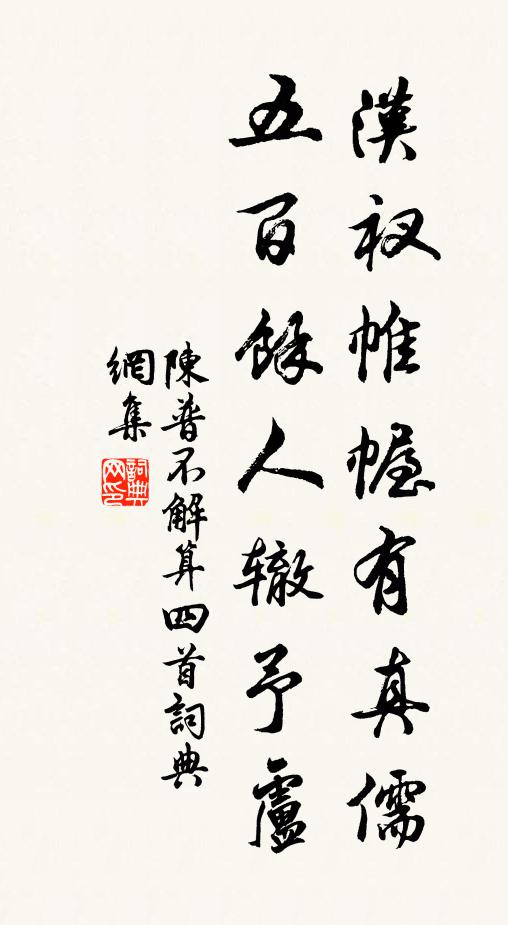 漢衩帷幄有真儒
五百餘人辙予盧
陳普不解算四首詞典
網集
詞典网印